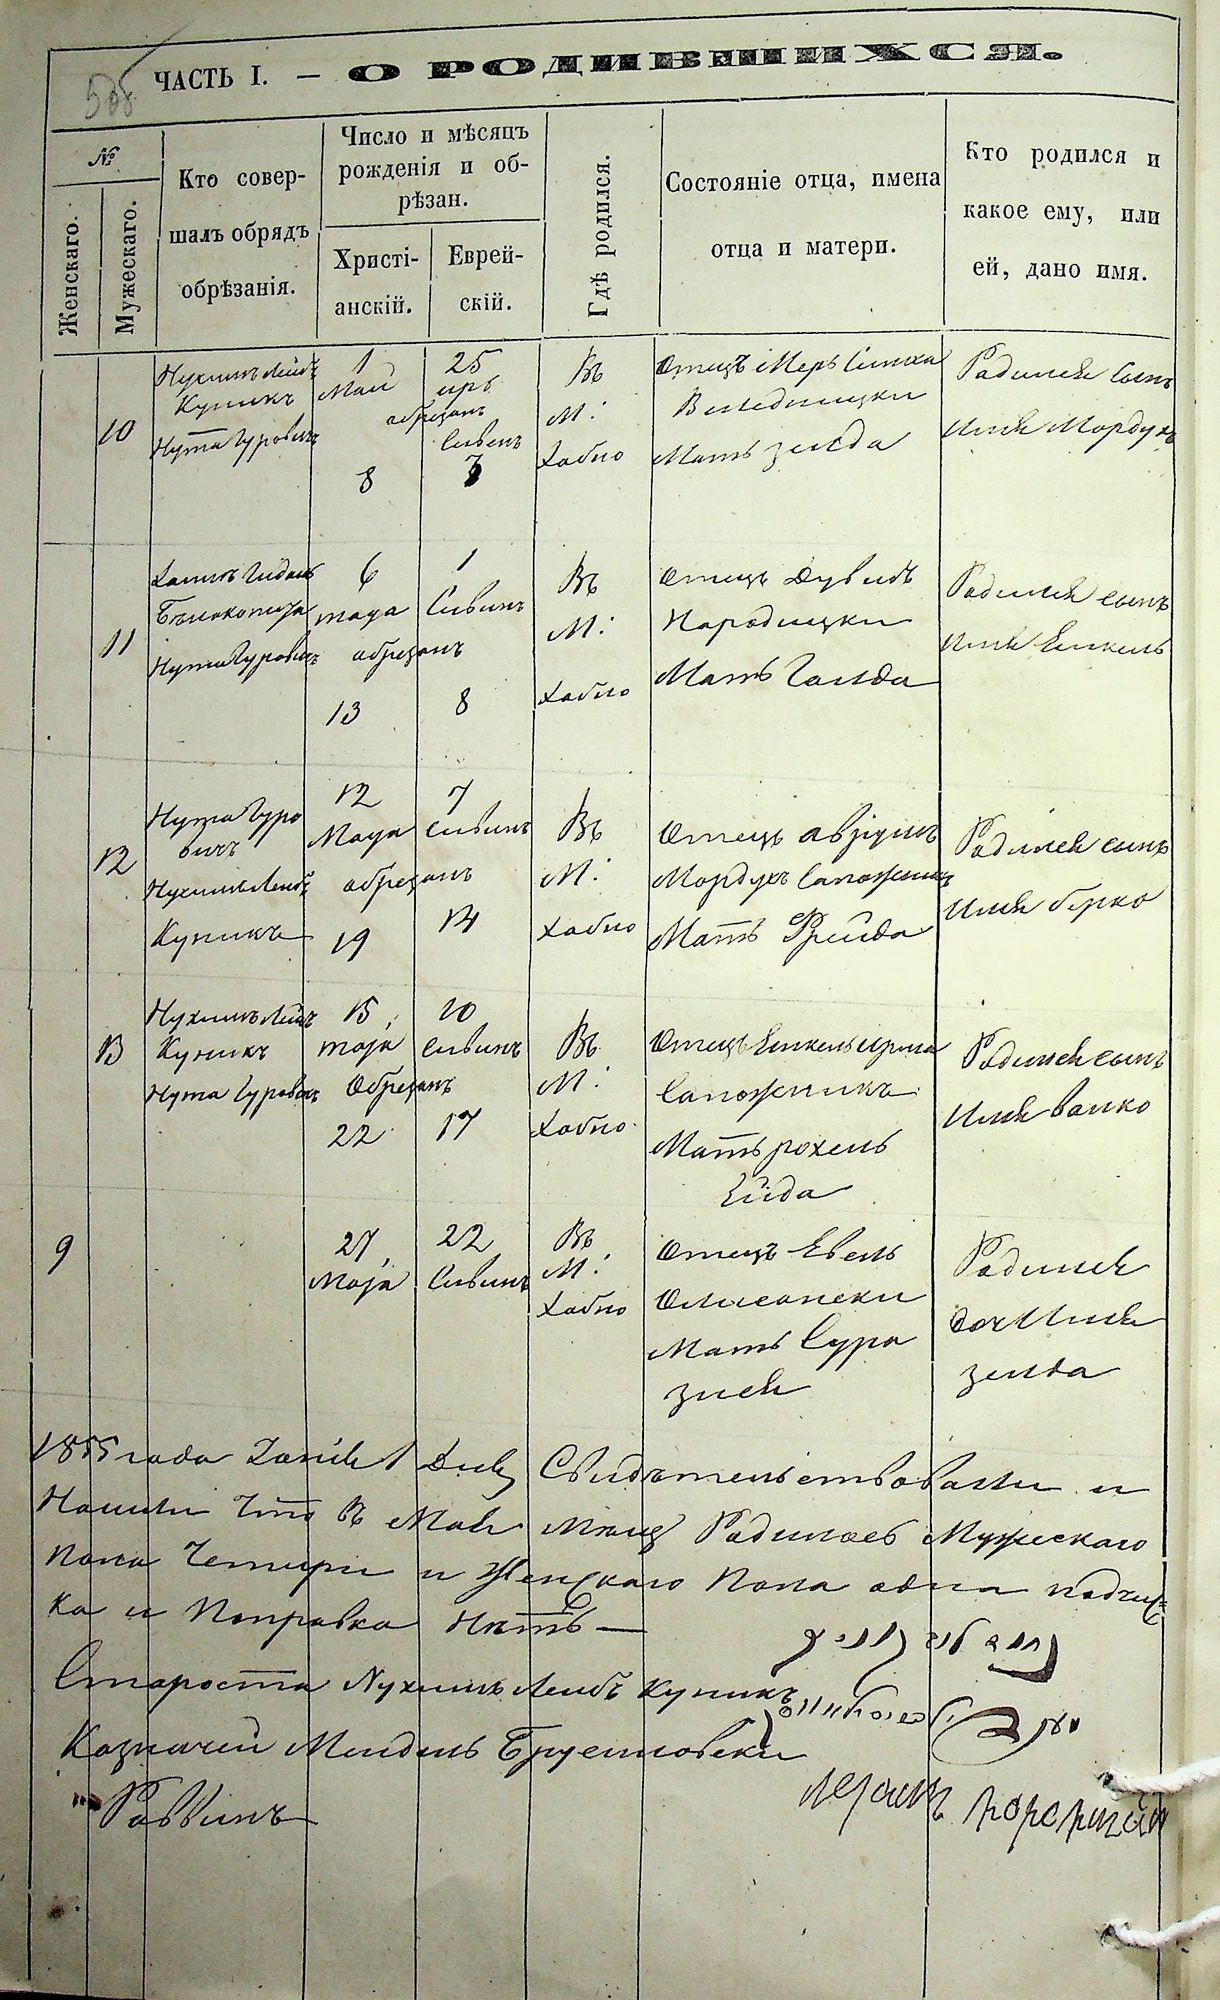 ЧАСТЬ I. — О РОДИВШИХСЯ.
№
Женскаго.
Мужескаго.
Кто совер-
шалъ обрядъ
обрѣзанія.
Число и мѣсяцъ
рожденія и об-
рѣзан.
Христі-
анскій.
Еврей-
скій.
Гдѣ родился.
Состояніе отца, имена
отца и матери.
Кто родился и
какое ему, или
ей, дано имя.
10
Нухимъ Лейбъ
Куникъ
Нута Гуровичъ
1
Май
обрезанъ
8
25
иръ
Сивенъ
3
Въ
М:
Хабно
Отецъ Меръ Симха
Мать Зелда
Родился сынъ
Имя Мордухъ
11
Нута Гуровичъ
6
мая
обрезанъ
13
1
Сивинъ
8
Въ
М:
Хабно
Отецъ Дувидъ
Народицки
Мать Голда
Родился сынъ
Имя Енкель
12
Нута Гуро
вичъ
Нухимъ Лейбъ
Куникъ
12
Мая
обрезанъ
19
7
Сивинъ
14
Въ
М:
Хабно
Отецъ Аврумъ
Мордухъ Сапожникъ
Мать Фрейда
Родился сынъ
Имя Берко
13
Нухимъ Лейбъ
Куникъ
Нута Гуровичъ
15
мая
Обрезанъ
22
10
Сивинъ
17
Въ
М:
Хабно
Отецъ Енкель
Сапожникъ
Мать Рохель
Ейда
Родился сынъ
Имя Волко
9
27
Мая
22
Сивинъ
Въ
М:
Хабно
Отецъ Евель
Олисански
Мать Сура
Родился
доч Имя
Зелда
1855 года 1 Дня Свидѣтельствовали и
Нашли Что въ Маи Мяцѣ Родилось Мужескаго
Пола Четири и Женскаго Пола одна подчис
ка и Поправка Нѣтъ —
Староста Нухимъ Лейбъ Куникъ
Казначей Мендель Бруслловски
Раввинъ